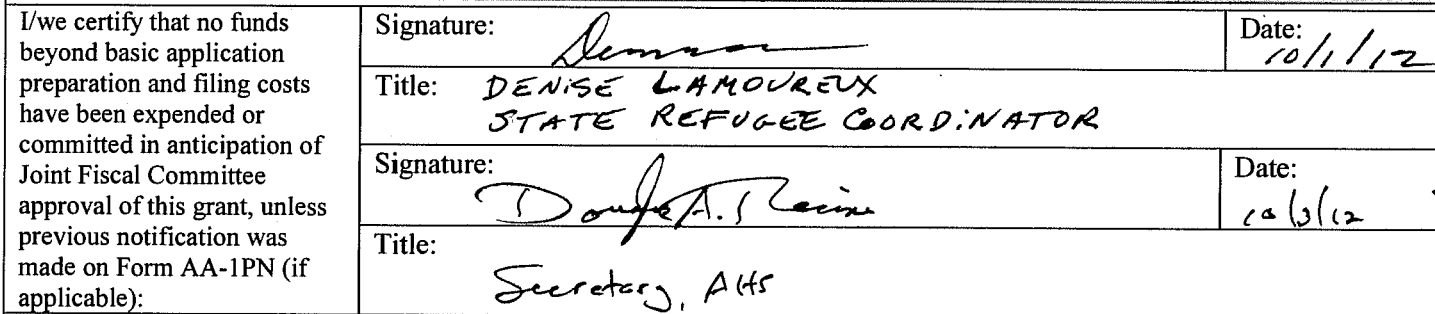 I/we certify that no funds
beyond basic application
preparation and filing costs
have been expended or
committed in anticipation of
Joint Fiscal Committee
approval of this grant, unless
previous notification was
made on Form AA-1PN (if
applicable):
Signature:
Date: 10/1/12
Title: DENISE LAMOUREUX
STATE REFUGEE COORDINATOR
Signature: Douglas A. Racine
Date: 10/3/12
Title:
Secretary, AHS